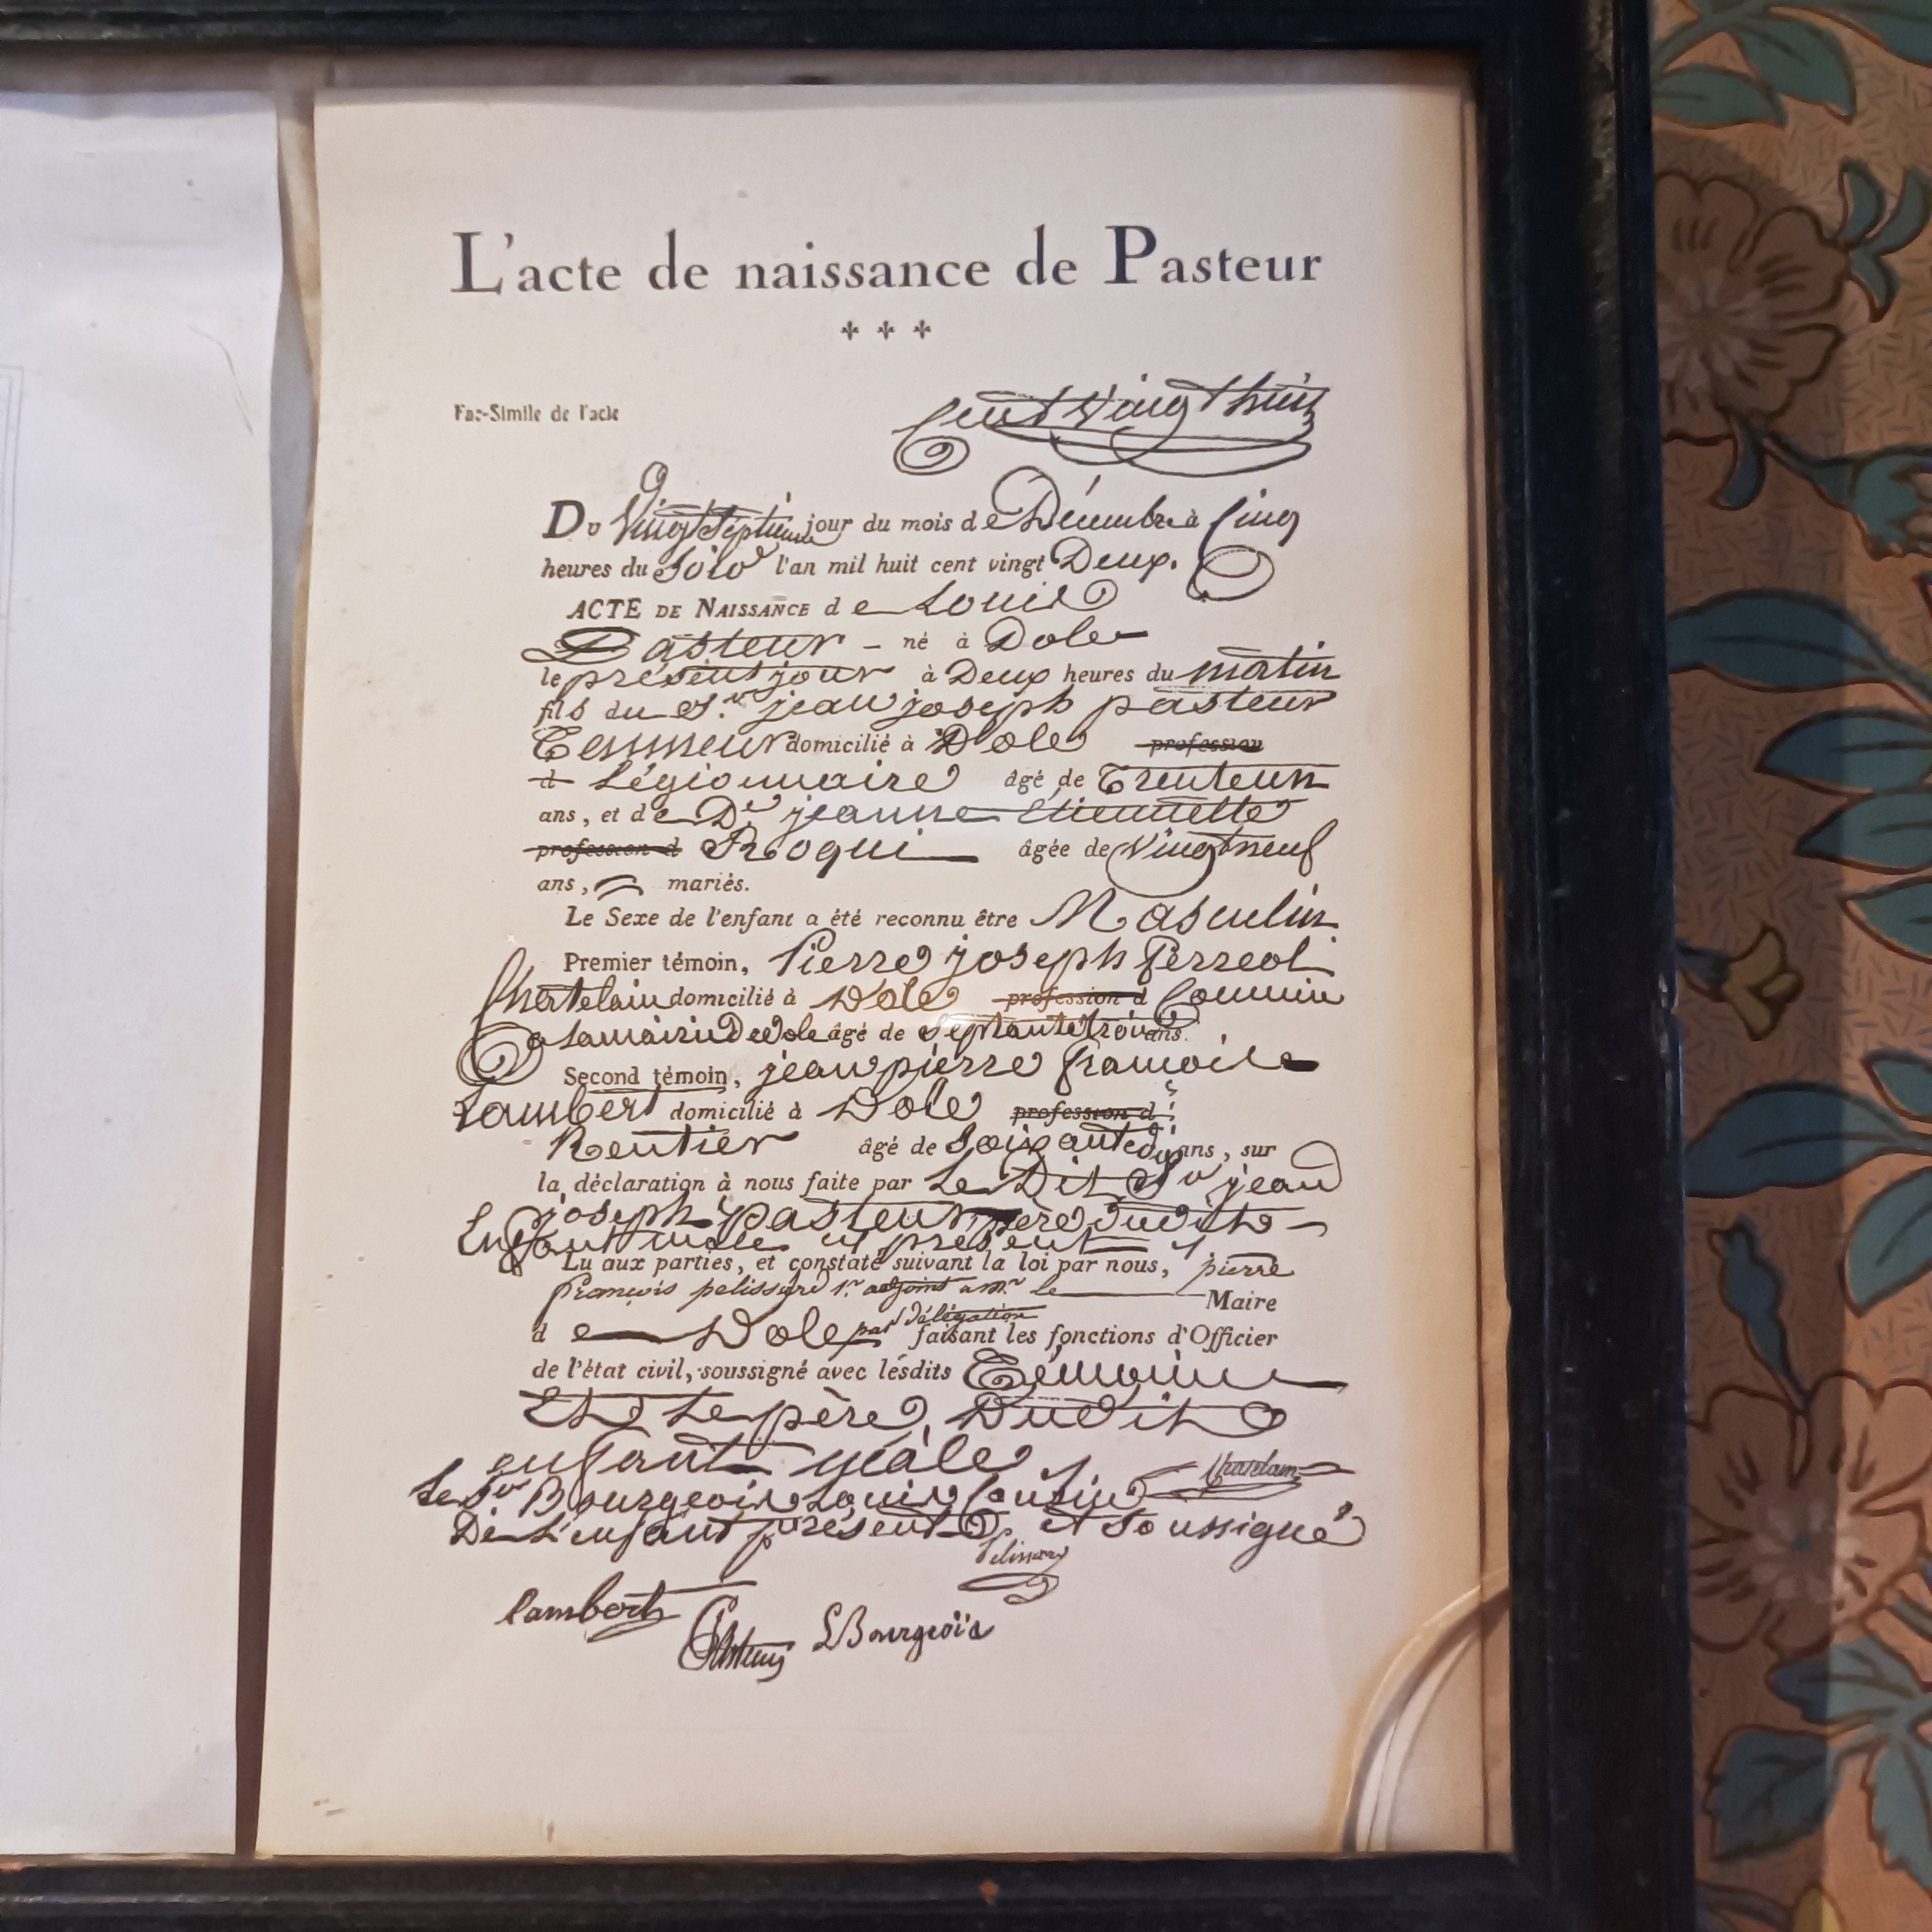 L'acte de naissance de Pasteur
Fac-Simile de l'acte
Cent Vingt huit
Du Vingt Septieme jour du mois de Décembre à Cinq
heures du Soir l'an mil huit cent vingt Deux.
ACTE DE NAISSANCE de Louis
Pasteur – né à Dole
le présent jour à Deux heures du matin
fils du Sr. jean joseph pasteur
Tenneur domicilié à Dole profession
d Légionnaire âgé de Trenteun
ans, et de De jeanne Etiennette
profession d Roqui âgée de Vingt neuf
ans, mariés.
Le Sexe de l'enfant a été reconnu être Masculin
Premier témoin, Pierre joseph Perreol
Chatelain domicilié à Dole profession d Commis
a la mairie De Dole âgé de Septante trois ans.
Second témoin, jean pierre francois
Lambert domicilié à Dole profession d
Rentier âgé de Soixante dix ans, sur
la déclaration à nous faite par Le Dit Sr jean
joseph Pasteur père dudit
Enfant male ici présent
Lu aux parties, et constaté suivant la loi par nous, pierre
François pelissard 1r. adjoint a mr. le Maire
de Dole par délégation faisant les fonctions d'Officier
de l'état civil, soussigné avec lesdits Témoins
Et Le père, Dudit
enfant mâle
Le Sr Bourgeois Louis Cousin
De L'enfant présent et Soussigné
lambert
Pasteur
LBourgeois